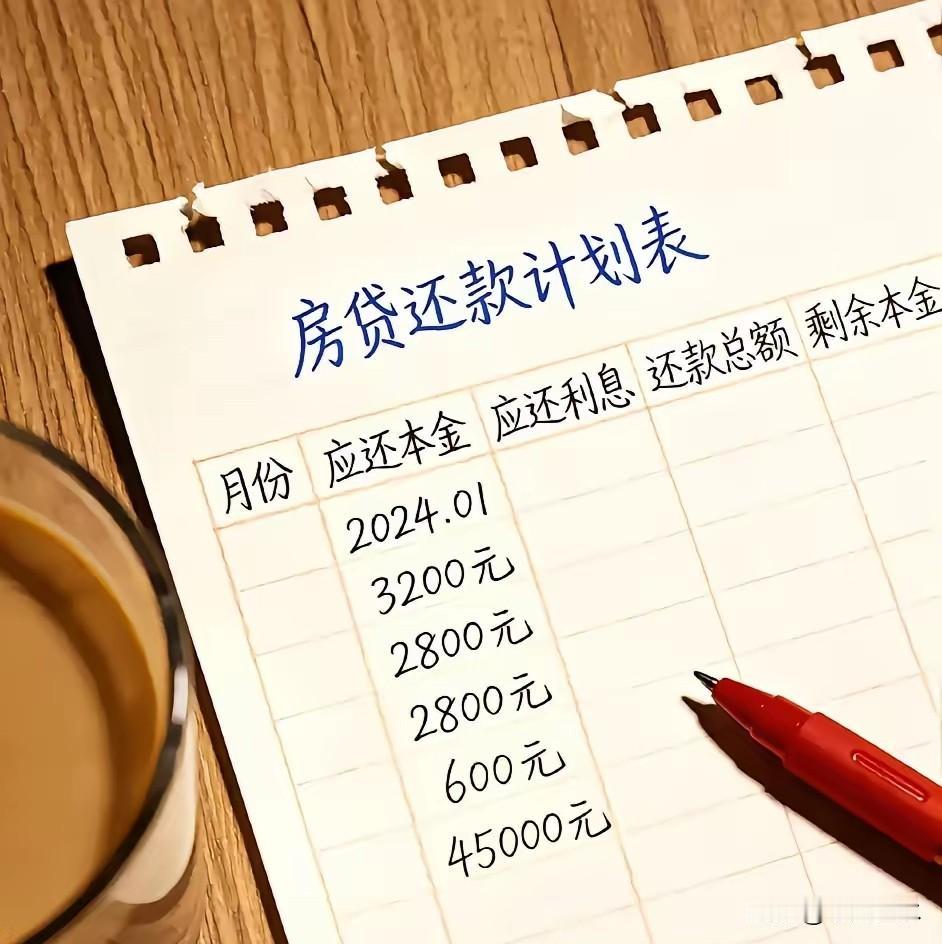 房贷还款计划表
月份 应还本金 应还利息 还款总额 剩余本金
2024.01
3200元
2800元
2800元
600元
45000元